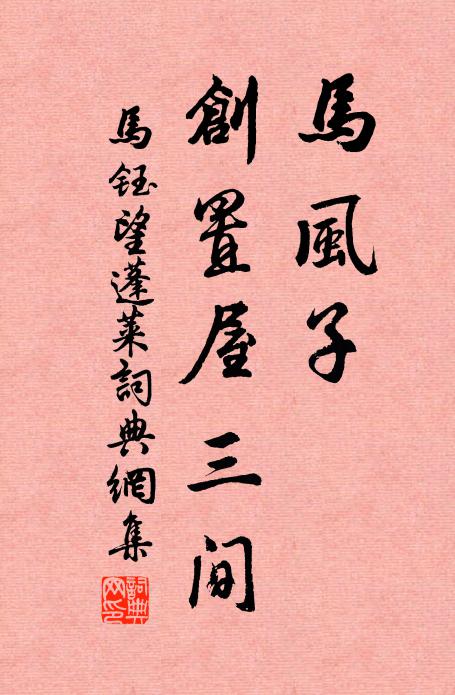 馬風子
創置屋三間
馬鈺望蓬萊詞典網集
詞典网印